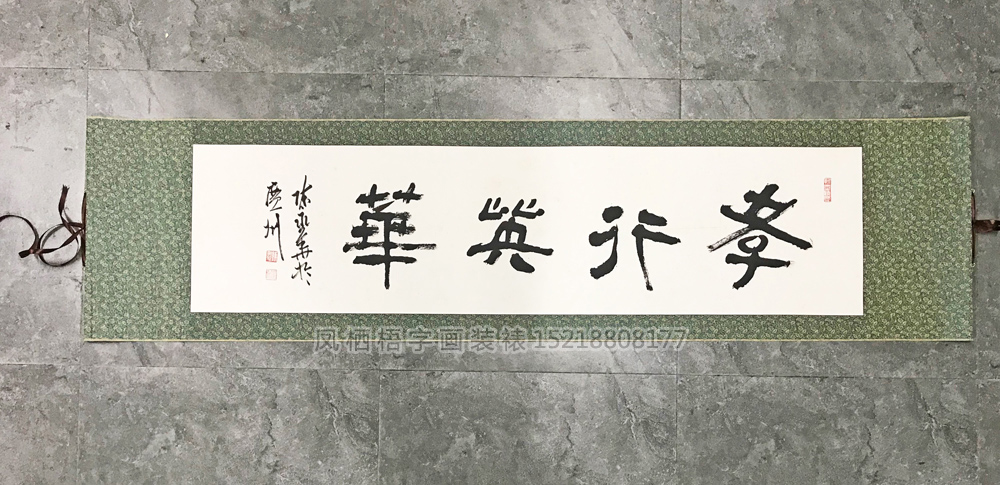 孝行英華
陈永华於
廣州
凤栖梧字画装裱 15218808177